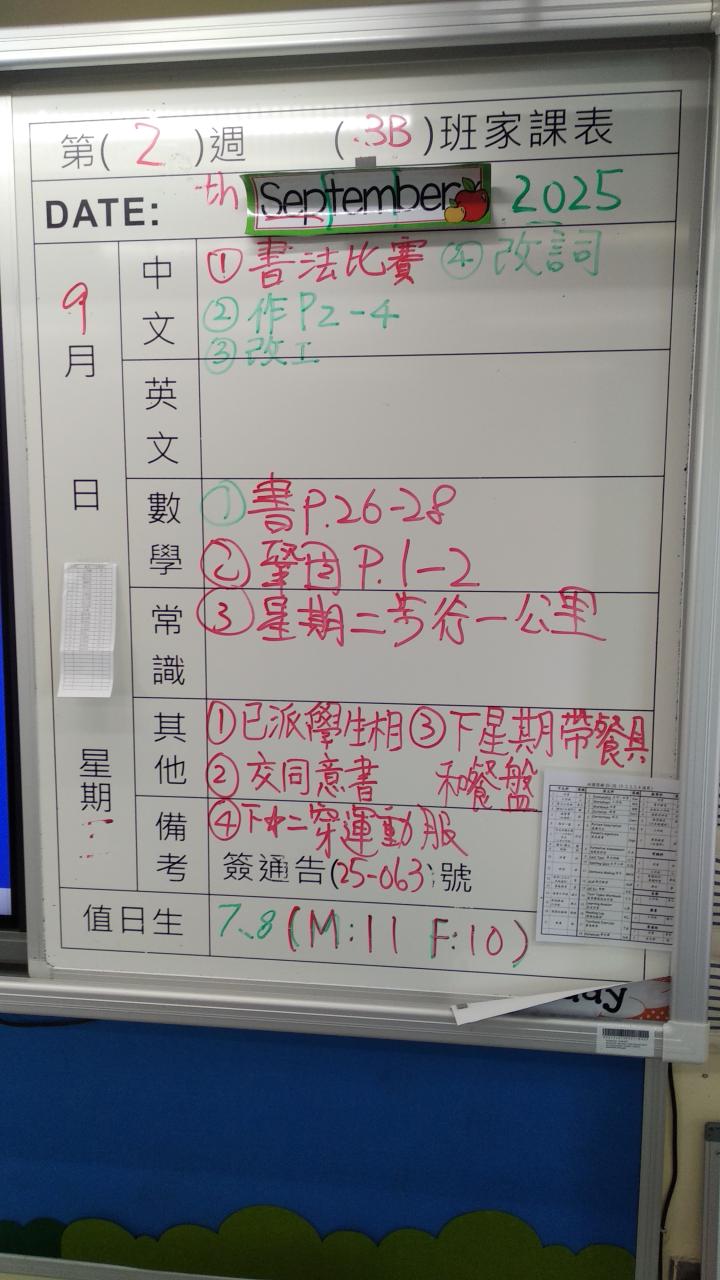 第(2)週 (3B)班家課表
DATE: th September 2025
9月 日 星期二
中文 ①書法比賽 ④改詞
②作P2-4
③改工
英文
數學 ①書P.26-28
②鞏固P.1-2
常識 ③星期二步行一公里
其他 ①已派學生相 ③下星期帶餐具
②交同意書 和餐盤
備考 ④下才二穿運動服
簽通告(25-063)號
值日生 7、8 (M:11 F:10)
day